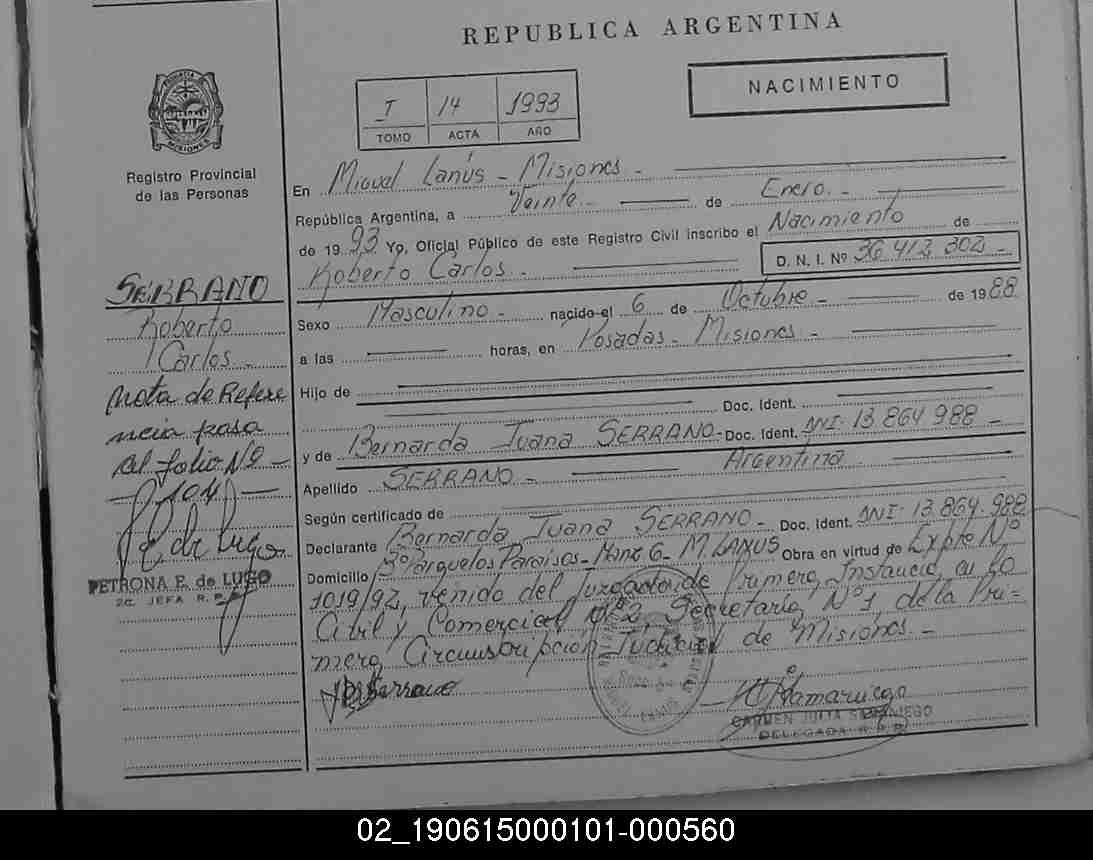 REPUBLICA ARGENTINA
NACIMIENTO
I 14 1993
TOMO ACTA AÑO
PROVINCIA DE MISIONES
Registro Provincial
de las Personas
En Miguel Lanús - Misiones -
República Argentina, a Veinte - de Enero. -
de 1993 Yo, Oficial Público de este Registro Civil inscribo el Nacimiento de
Roberto Carlos - D. N. I. Nº 36.413.302 -
Sexo Masculino - nacido el 6 de Octubre - de 1988
a las horas, en Posadas - Misiones -
Hijo de
Doc. Ident.
y de Bernarda Juana SERRANO - Doc. Ident. DNI- 13.864.988 -
Apellido SERRANO - Argentina
Según certificado de
Declarante Bernarda Juana SERRANO - Doc. Ident. DNI- 13.864.988
Domicilio Bº Parguelos Paraisos - Manz 6 - M. LANUS Obra en virtud de Expte Nº
1019/92, venido del Juzgado de Primera Instancia en lo
Civil y Comercial Nº 2, Secretaría Nº 1, de la Pri-
mera Circunscripción Judicial de Misiones. -
SERRANO
Roberto
Carlos -
Nota de Refere
ncia pasa
al folio Nº -
- 104 -
PETRONA E. de LUGO
2a. JEFA R. P.
CARMEN JULIA SAMANIEGO
DELEGADA R. P. P.
02_190615000101-000560